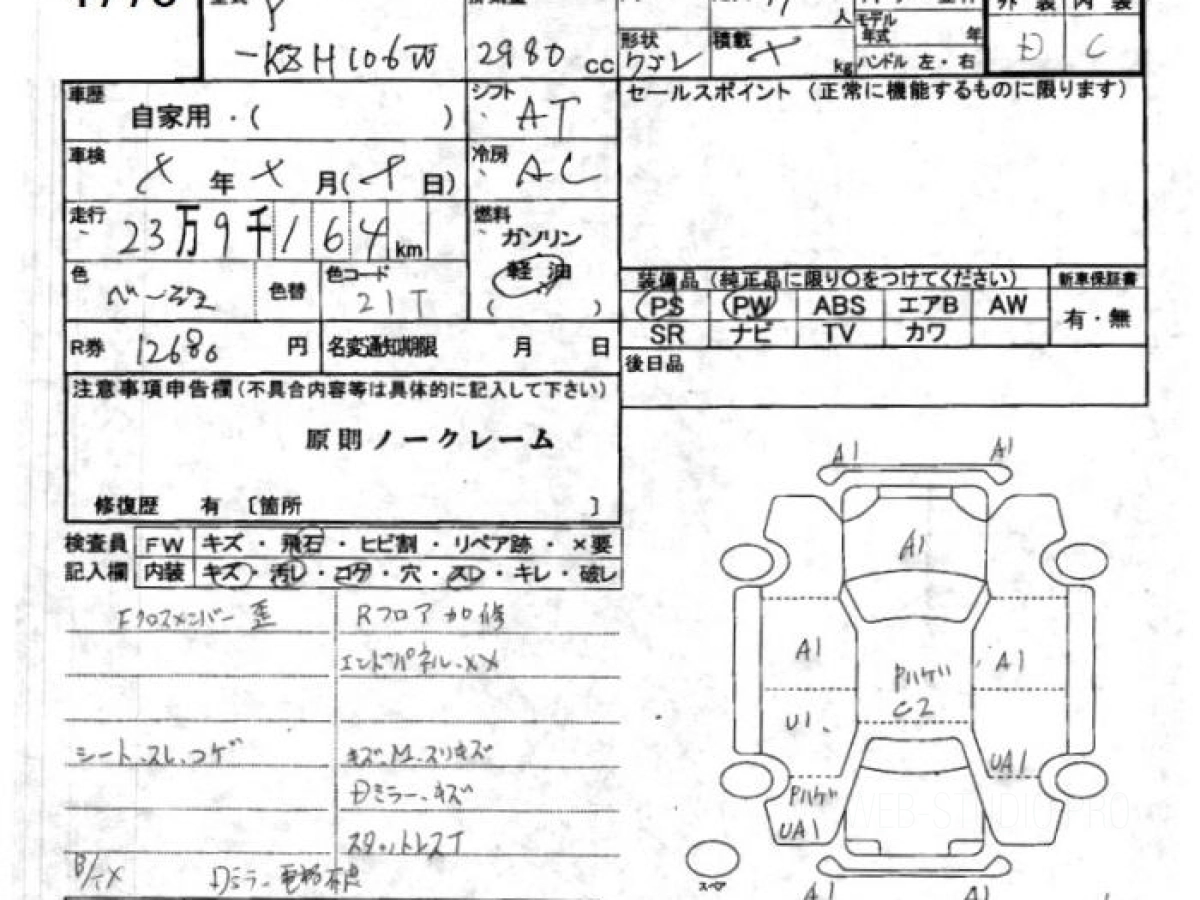 -KZH106W
2980 cc
人
kg
形状 ワゴン
積載
モデル年式 年
ハンドル 左・右
外装 内装
D C
車歴 自家用・( )
シフト AT
セールスポイント (正常に機能するものに限ります)
車検 年 月( 日)
冷房 AC
走行 23万9千164km
燃料 ガソリン
軽油
( )
色 ベージュ 色替
色コード 21T
装備品 (純正品に限り○をつけてください)
新車保証書
PS PW ABS エアB AW
有・無
SR ナビ TV カワ
R券 12680 円
名変通知期限 月 日
後日品
注意事項申告欄(不具合内容等は具体的に記入して下さい)
原則ノークレーム
修復歴 有 [箇所 ]
検査員 FW キズ・飛石・ヒビ割・リペア跡・×要
記入欄 内装 キズ・汚レ・コゲ・穴・スレ・キレ・破レ
Fクロスメンバー歪
Rフロア加修
エンドパネル、XX
シート、スレ、コゲ
キズ、M、スリキズ
Dミラー、キズ
スタットレスT
Dミラー
A1 A1
A1
A1
A1
Pハゲ
C2
U1
UA1
Pハゲ
UA1
スペア
A1 A1
WEB-STUDIOS PRO